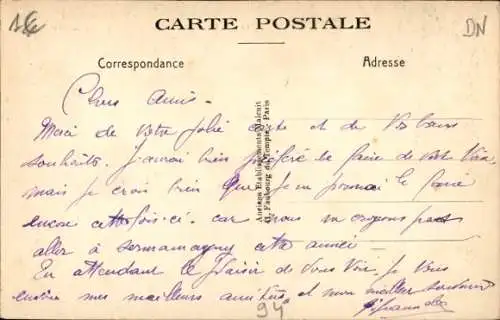 1€
CARTE POSTALE
DN
Correspondance
Adresse
Anciens Etablissements Malcuit
Faubourg du Temple, Paris
Chers Amis.
Merci de votre jolie carte et de vos bons
souhaits. J'aurai bien préféré le faire de vive voix
mais je crois bien que je ne pourrai le faire
encore cette fois-ci. car nous ne croyons pas
aller à Sermamagny cette année
En attendant le plaisir de vous voir, je vous
envoie mes meilleurs amitiés et mon meilleur souvenir
94